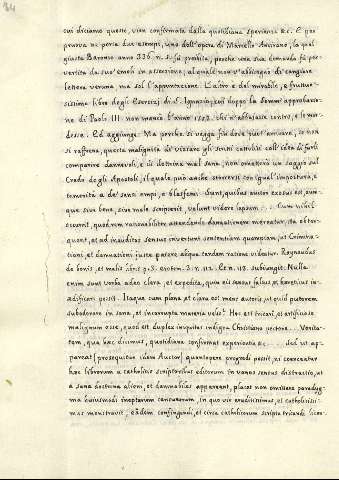 84
cui diciamo queste, vien confirmata dalla quotidiana sperienza &c. E per
pruova ne porta due esempi, uno dell'opera di Marcello Ancirano, la qual
giusta Baronio anno 336. n. fù proibita, perche una sua domanda fù per
vertita da suoi emoli in assersione; al quale non v'abbisognò di cangiare
lettera veruna, ma sol l'apuntazione. L'altro è del mirabile, e fruttuo
sissimo libro degli Esercizj di S. Ignazio, a cui doppo la somma approbazio
ne di Paolo III. non mancò l'anno 1553. chi n'abbajasse contro, e lo mor
desse. Ed aggiunge. Ma perche si vegga fin dove può arrivare, se non
si raffrena, questa malignità di viziare gli scritti cattolici coll'idea di farli
comparire dannevoli, e di dottrina mal sana, non ometterò un saggio sul
Credo degli Apostoli, il quale può anche storcersi con igual impostura, e
temerità a de' sensi empi, e blasfemi. Sunt, quibus autor exosus est, cum
que sive bene, sive male scripserit, volunt videre lapsum. Cum nihil
occurrit, quod rem rationabiliter attendendo damnationem mereatur, ita obtor
quent, et ad inauditos sensus invertunt sententiam quampiam, ut Crimina
tioni, et damnationi justa parere aliqua tandem ratione videatur. Raynaudus
de bonis, et malis libris p. 3. erotem. 3. n. 112. Et n. 118. subjungit. Nulla
enim sunt verba adeo clara, et expedita, quin eis sensus falsus, et hæreticus in
ædificari possit. Itaque cum plana, et clara est mens autoris, ut quid putorem
subodorare in sana, et incorrupta materia velis? Hoc est tricari, et artificiose
malignum esse, quod est duplex improbitas indigna Christiano pectore. Verita
tem, qua hæc dicimus, quotidiana confirmat experientia &c. Sed ut ap
pareat (prosequitur idem Auctor) quantopere progredi possit, ni coerceatur
hæc librorum a catholicis scriptoribus editorum in vanos sensus distractio, ut
a sana doctrina alieni, et damnabiles appareant, placet non omittere paradyg
ma hujusmodi ineptarum censurarum, in quo vir eruditissimus, et catholicissi
mus monstravit, eâdem confingendi, et circa catholicorum scripta tricandi licen